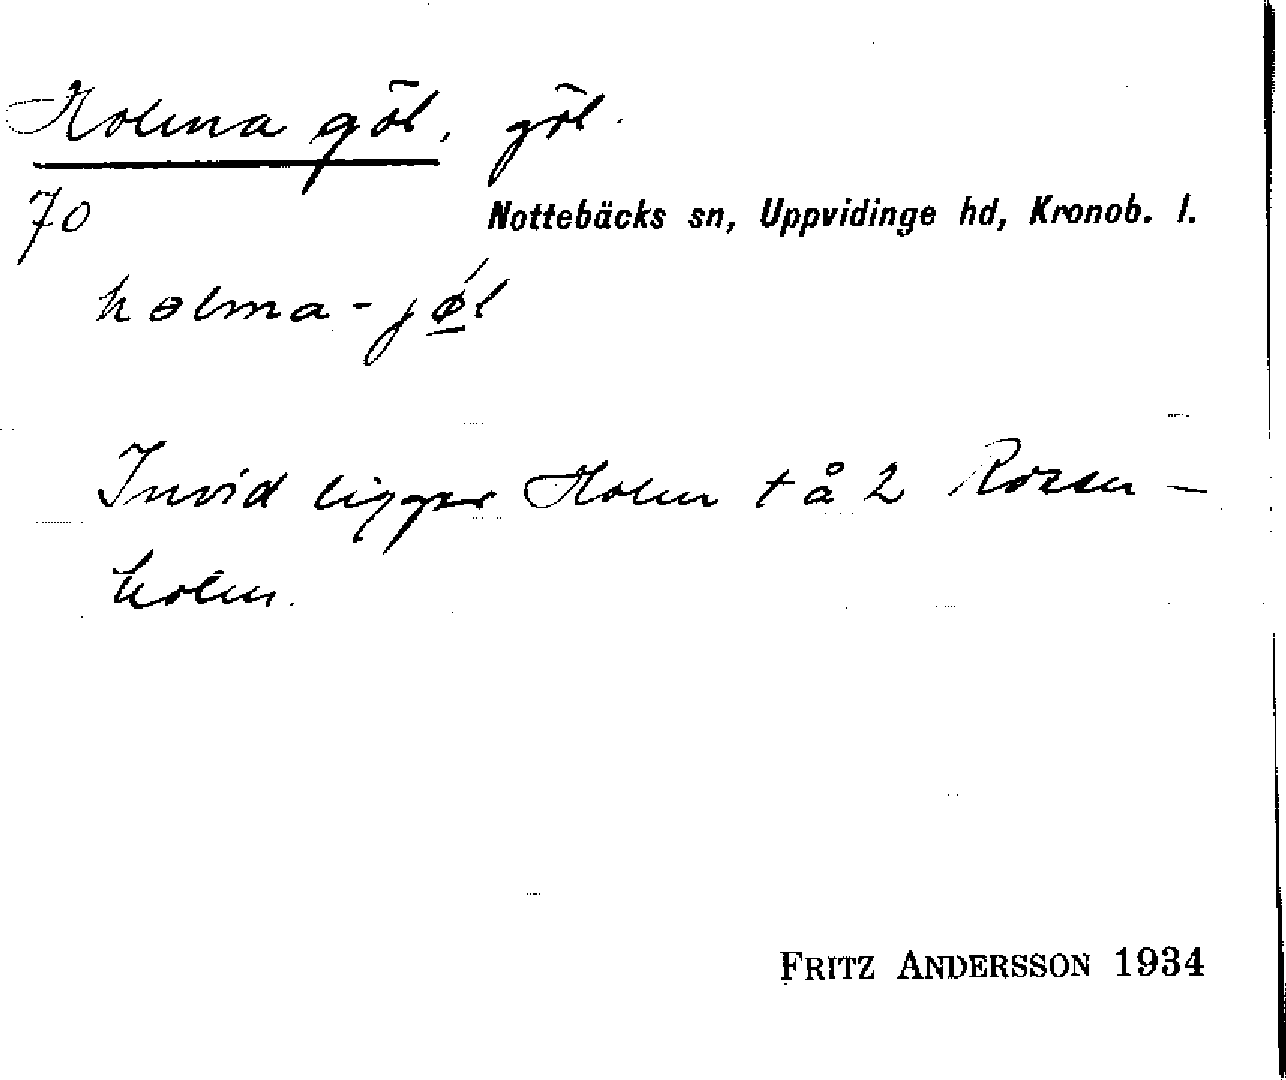 Holma göl, göl.
70
Nottebäcks sn, Uppvidinge hd, Kronob. l.
holma-jǿ̲l
Invid ligger Holm t å 2 Rosen-
holm.
FRITZ ANDERSSON 1934